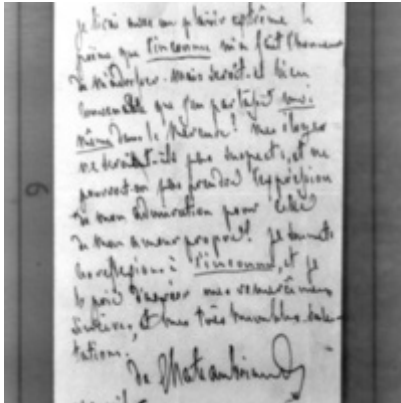 je lirai avec un plaisir extrême le
poème que l'inconnu m'a fait l'honneur
de m'adresser. mais seroit-il bien
convenable que j'en parlasse moi
même dans le Mercure! mes éloges
ne seroient-ils pas suspects, et ne
pourroit-on pas prendre l'expression
de mon admiration pour celle
de mon amour propre! Je soumets
ces réflexions à l'inconnu, et je
le prie d'agréer mes remerciemens
sincères, et mes très humbles salu-
tations.
de Chateaubriand